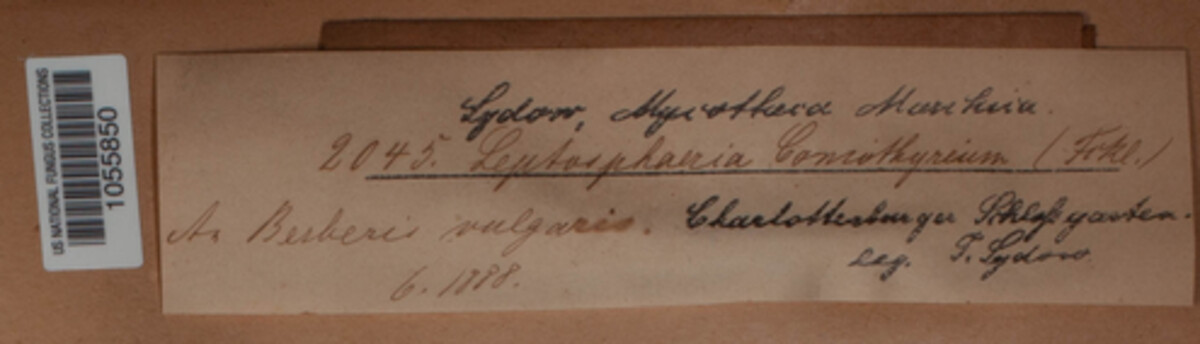 US NATIONAL FUNGUS COLLECTIONS
1055850
Sydow, Mycotheca Marchica.
2045. Leptosphaeria Coniothyrium (Fckl.)
An Berberis vulgaris. Charlottenburger Schloßgarten.
6. 1888. leg. P. Sydow